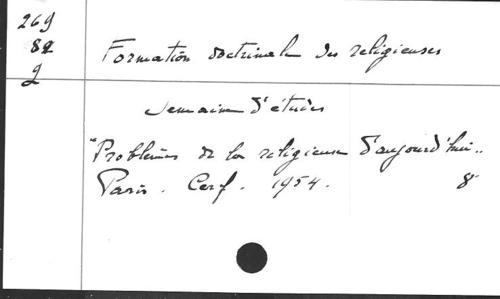 269
82
2
Formation doctrinale des religieuses
Semaine d'études
"Problèmes de la religieuse d'aujourd'hui„
Paris. Cerf. 1954. 8°